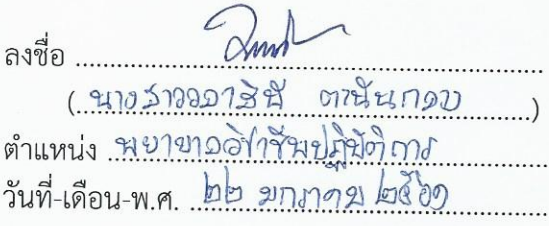 ลงชื่อ
(นางสาววลาสินี
ตำแหน่ง พยาบาลวิชาชีพปฏิบัติการ
วันที่-เดือน-พ.ศ. ๒๒ มกราคม ๒๕๖๑